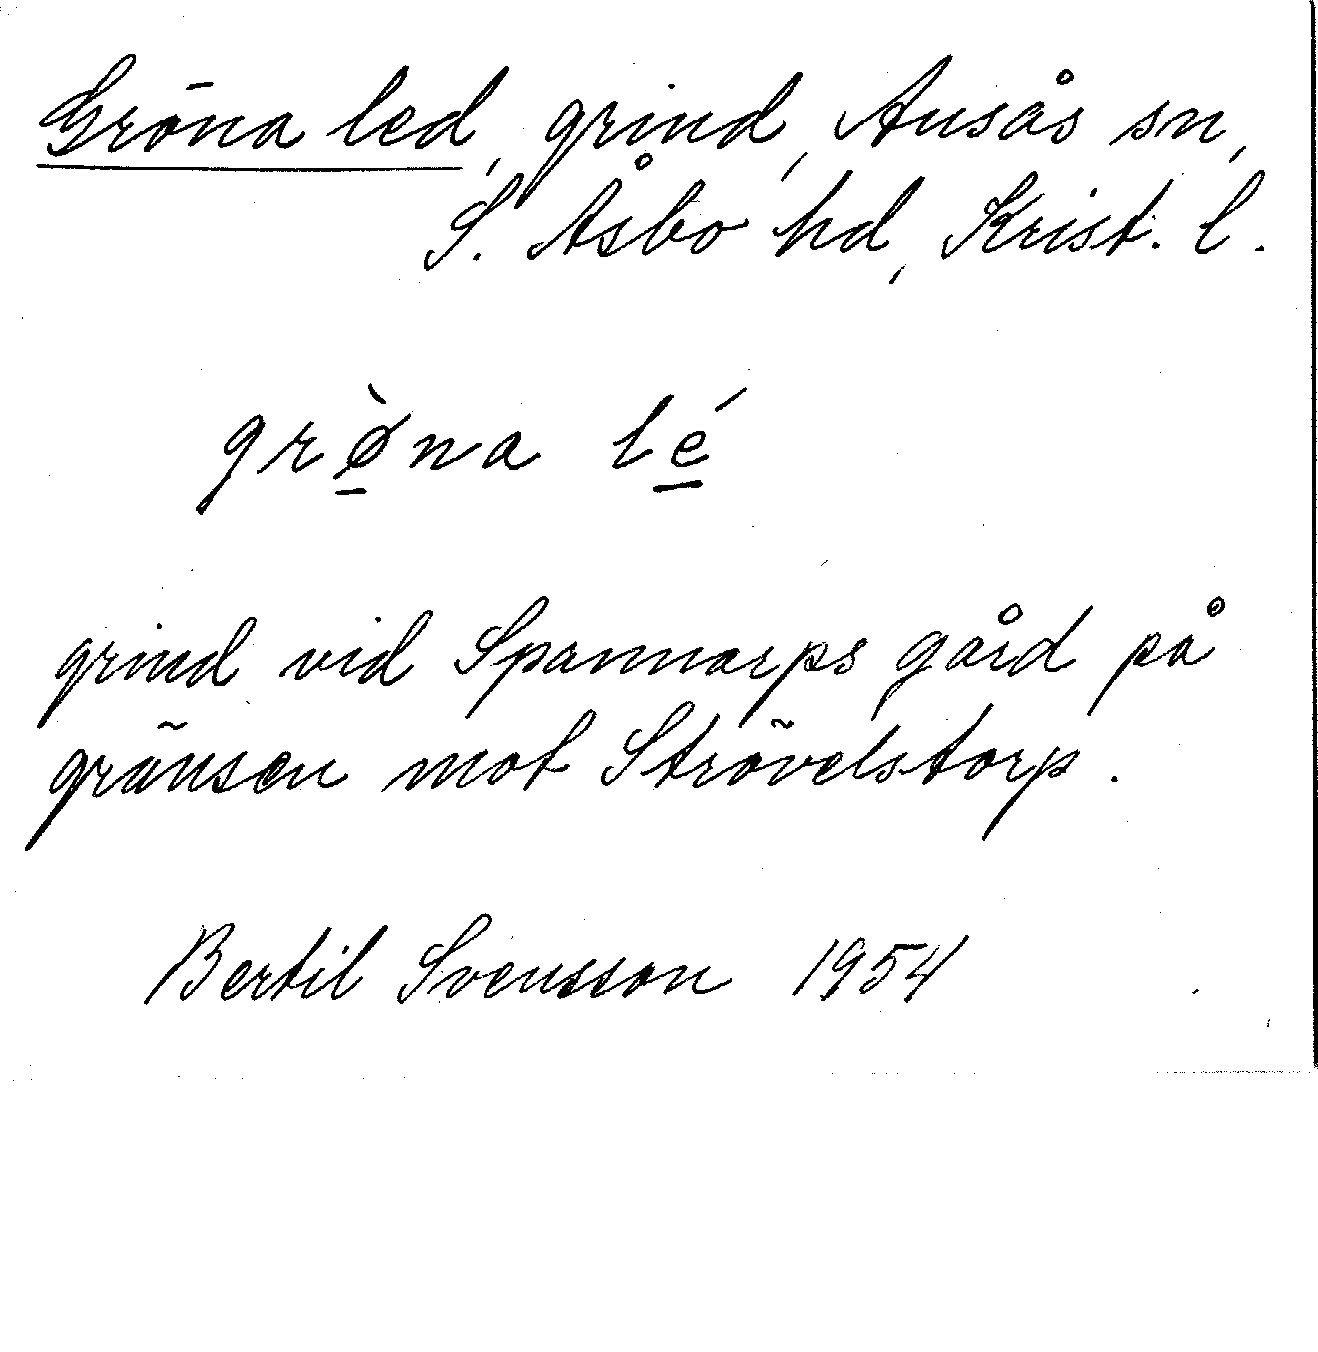 Gröna led, grind, Ausås sn,
S. Åsbo hd, Krist. l.
grø̠̀na lé̠
grind vid Spannarps gård på
gränsen mot Strövelstorp.
Bertil Svensson 1954